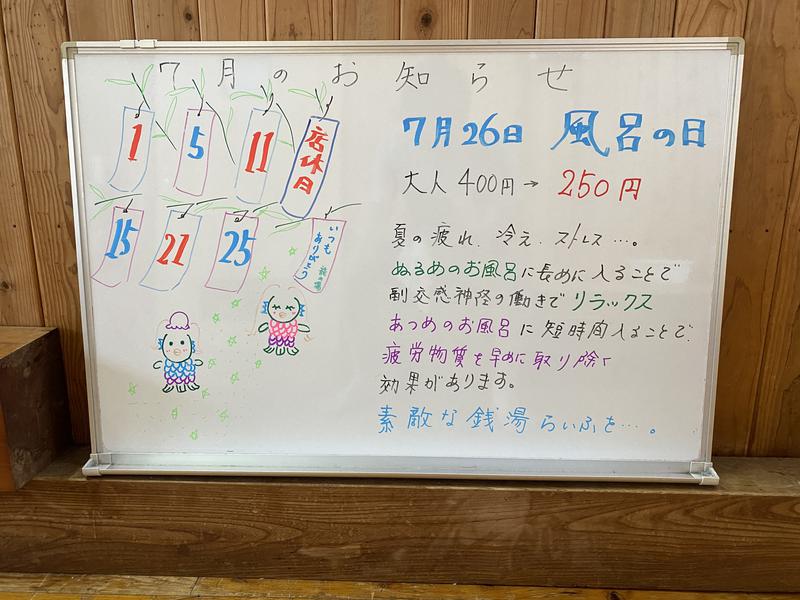 7月のお知らせ
1
5
11
店休日
15
21
25
いつも
ありがとう
7月26日 風呂の日
大人400円→250円
夏の疲れ、冷え、ストレス…。
ぬるめのお風呂に長めに入ることで
副交感神経の働きでリラックス
あつめのお風呂に短時間入ることで、
疲労物質を早めに取り除く
効果があります。
素敵な銭湯らいふを…。